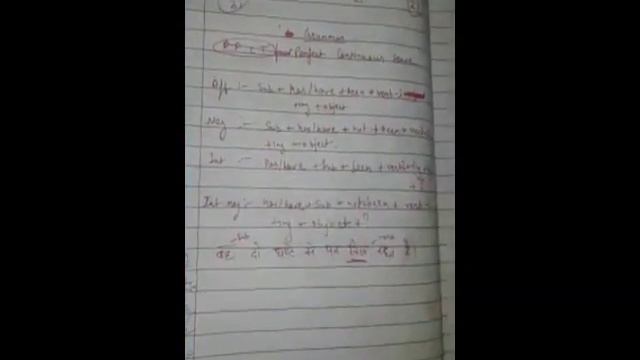 Grammar
Perfect Continuous Tense
Aff :- Sub + has/have + been + verb-
ing + object
Neg :- Sub + has/have + not + been + verb
+ ing + object.
Int :- Has/have + sub + been +
+ ?
Int neg :- Has/have + Sub + not + been + verb-
ing + object + ?
Sub
वह दो घंटे से पत्र लिख रहा है।